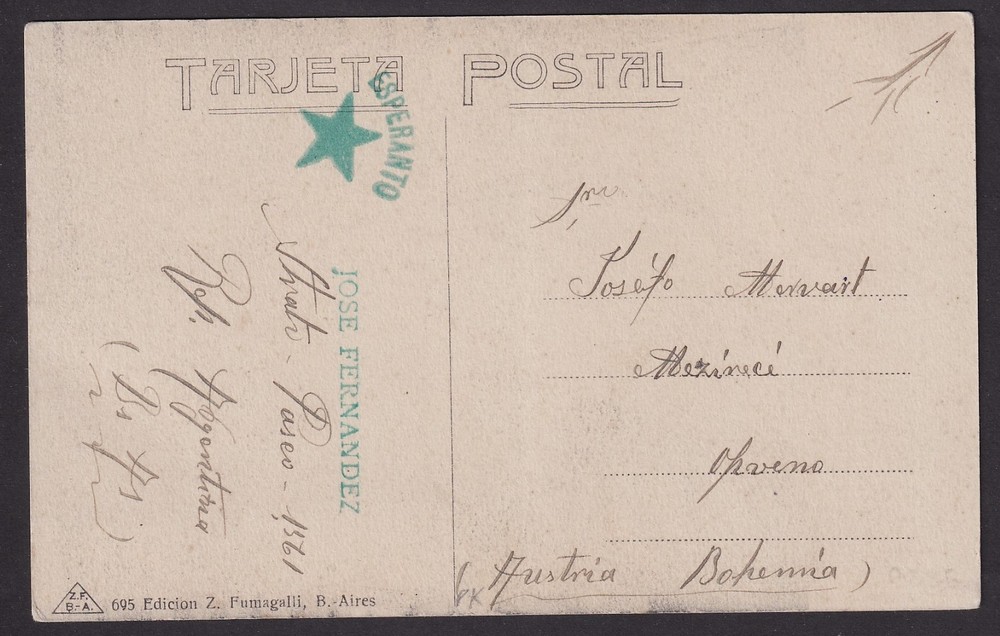 TARJETA POSTAL
ESPERANTO
JOSE FERNANDEZ
Strato - Paseo - 1361
Rep. Argentina
(Bs As)
Sro
Joséfo Mervart
Mezirecé
Opveno
(Austria Bohemia)
PK
Z.F.
B.-A.
695 Edicion Z. Fumagalli, B.-Aires